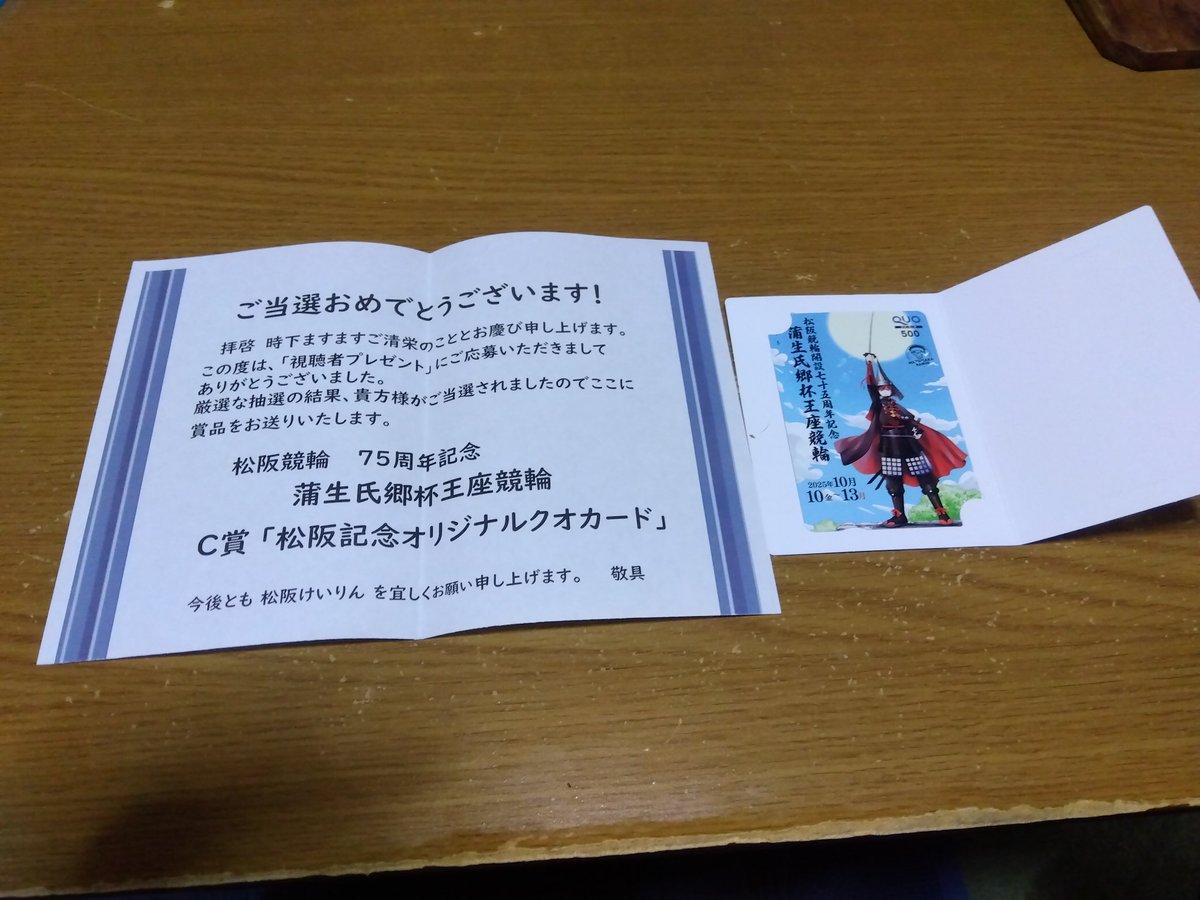 ご当選おめでとうございます!
拝啓 時下ますますご清栄のこととお慶び申し上げます。
この度は、「視聴者プレゼント」にご応募いただきまして
ありがとうございました。
厳選な抽選の結果、貴方様がご当選されましたのでここに
賞品をお送りいたします。
松阪競輪 75周年記念
蒲生氏郷杯王座競輪
C賞「松阪記念オリジナルクオカード」
今後とも 松阪けいりん を宜しくお願い申し上げます。 敬具
QUO
500
松阪競輪開設七十五周年記念
蒲生氏郷杯王座競輪
2025年10月
10金~13月